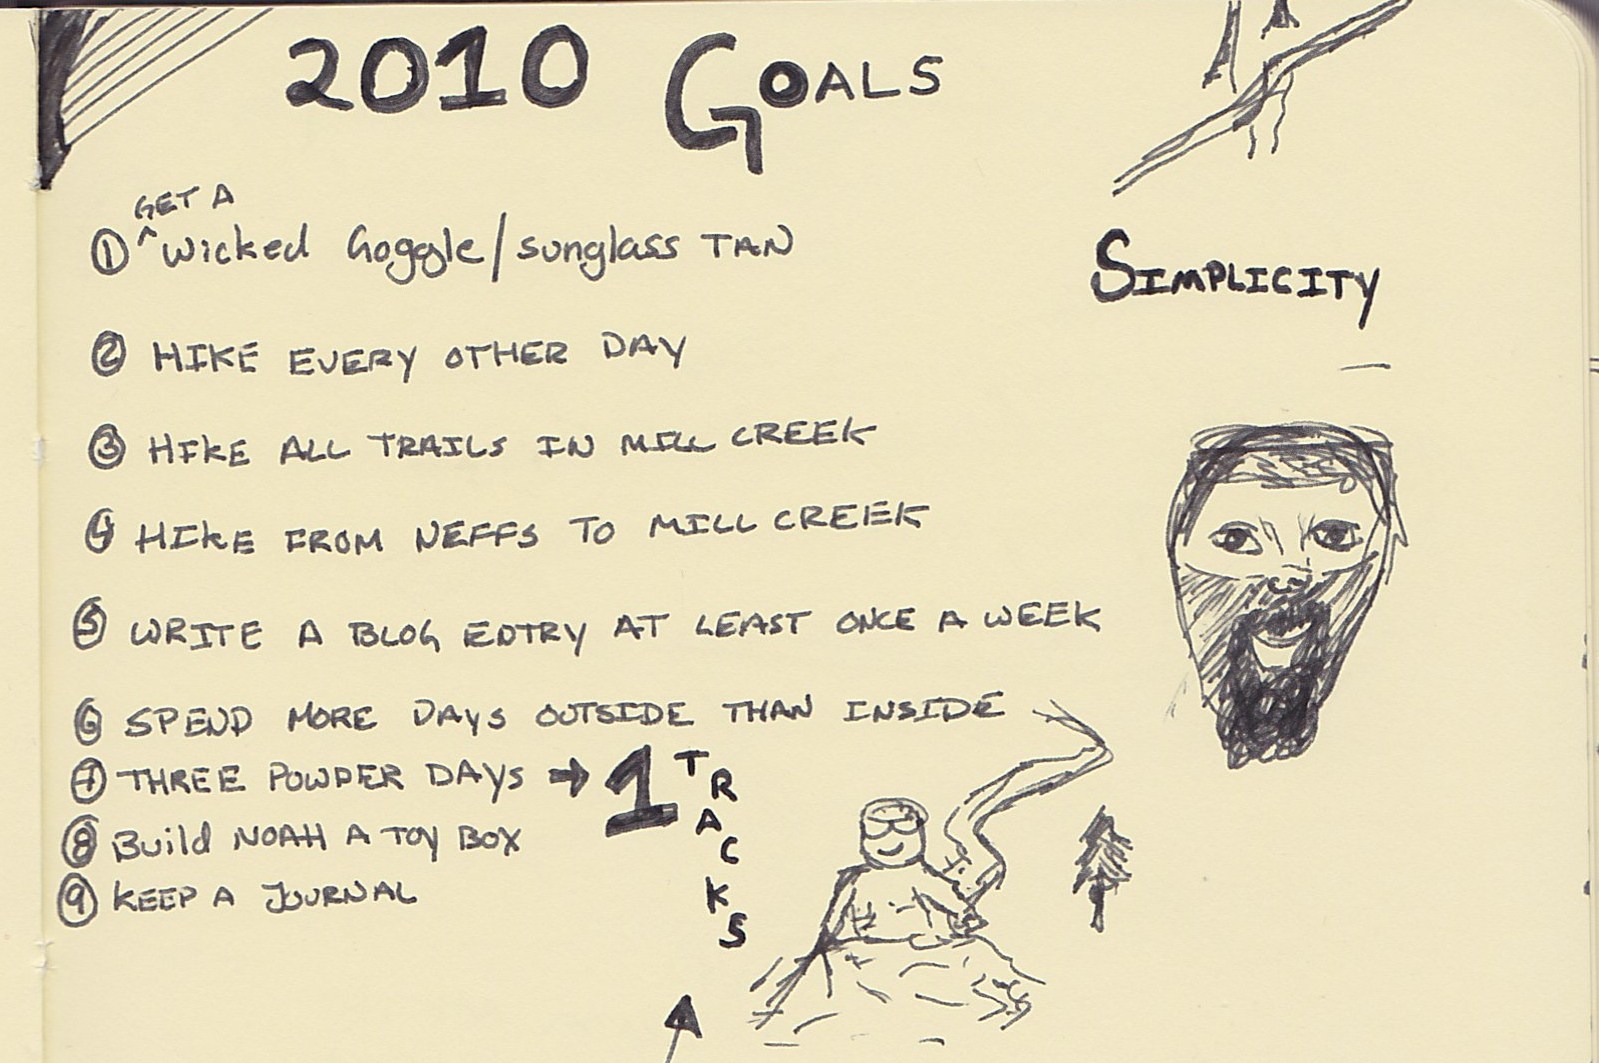 2010 GOALS
GET A
① ^ wicked Goggle/sunglass TAN
SIMPLICITY
② HIKE EVERY OTHER DAY
③ HIKE ALL TRAILS IN MILL CREEK
④ HIKE FROM NEFFS TO MILL CREEK
⑤ WRITE A BLOG ENTRY AT LEAST ONCE A WEEK
⑥ SPEND MORE DAYS OUTSIDE THAN INSIDE
⑦ THREE POWDER DAYS → 1 TRACKS
⑧ Build NOAH A TOY BOX
⑨ KEEP A JOURNAL